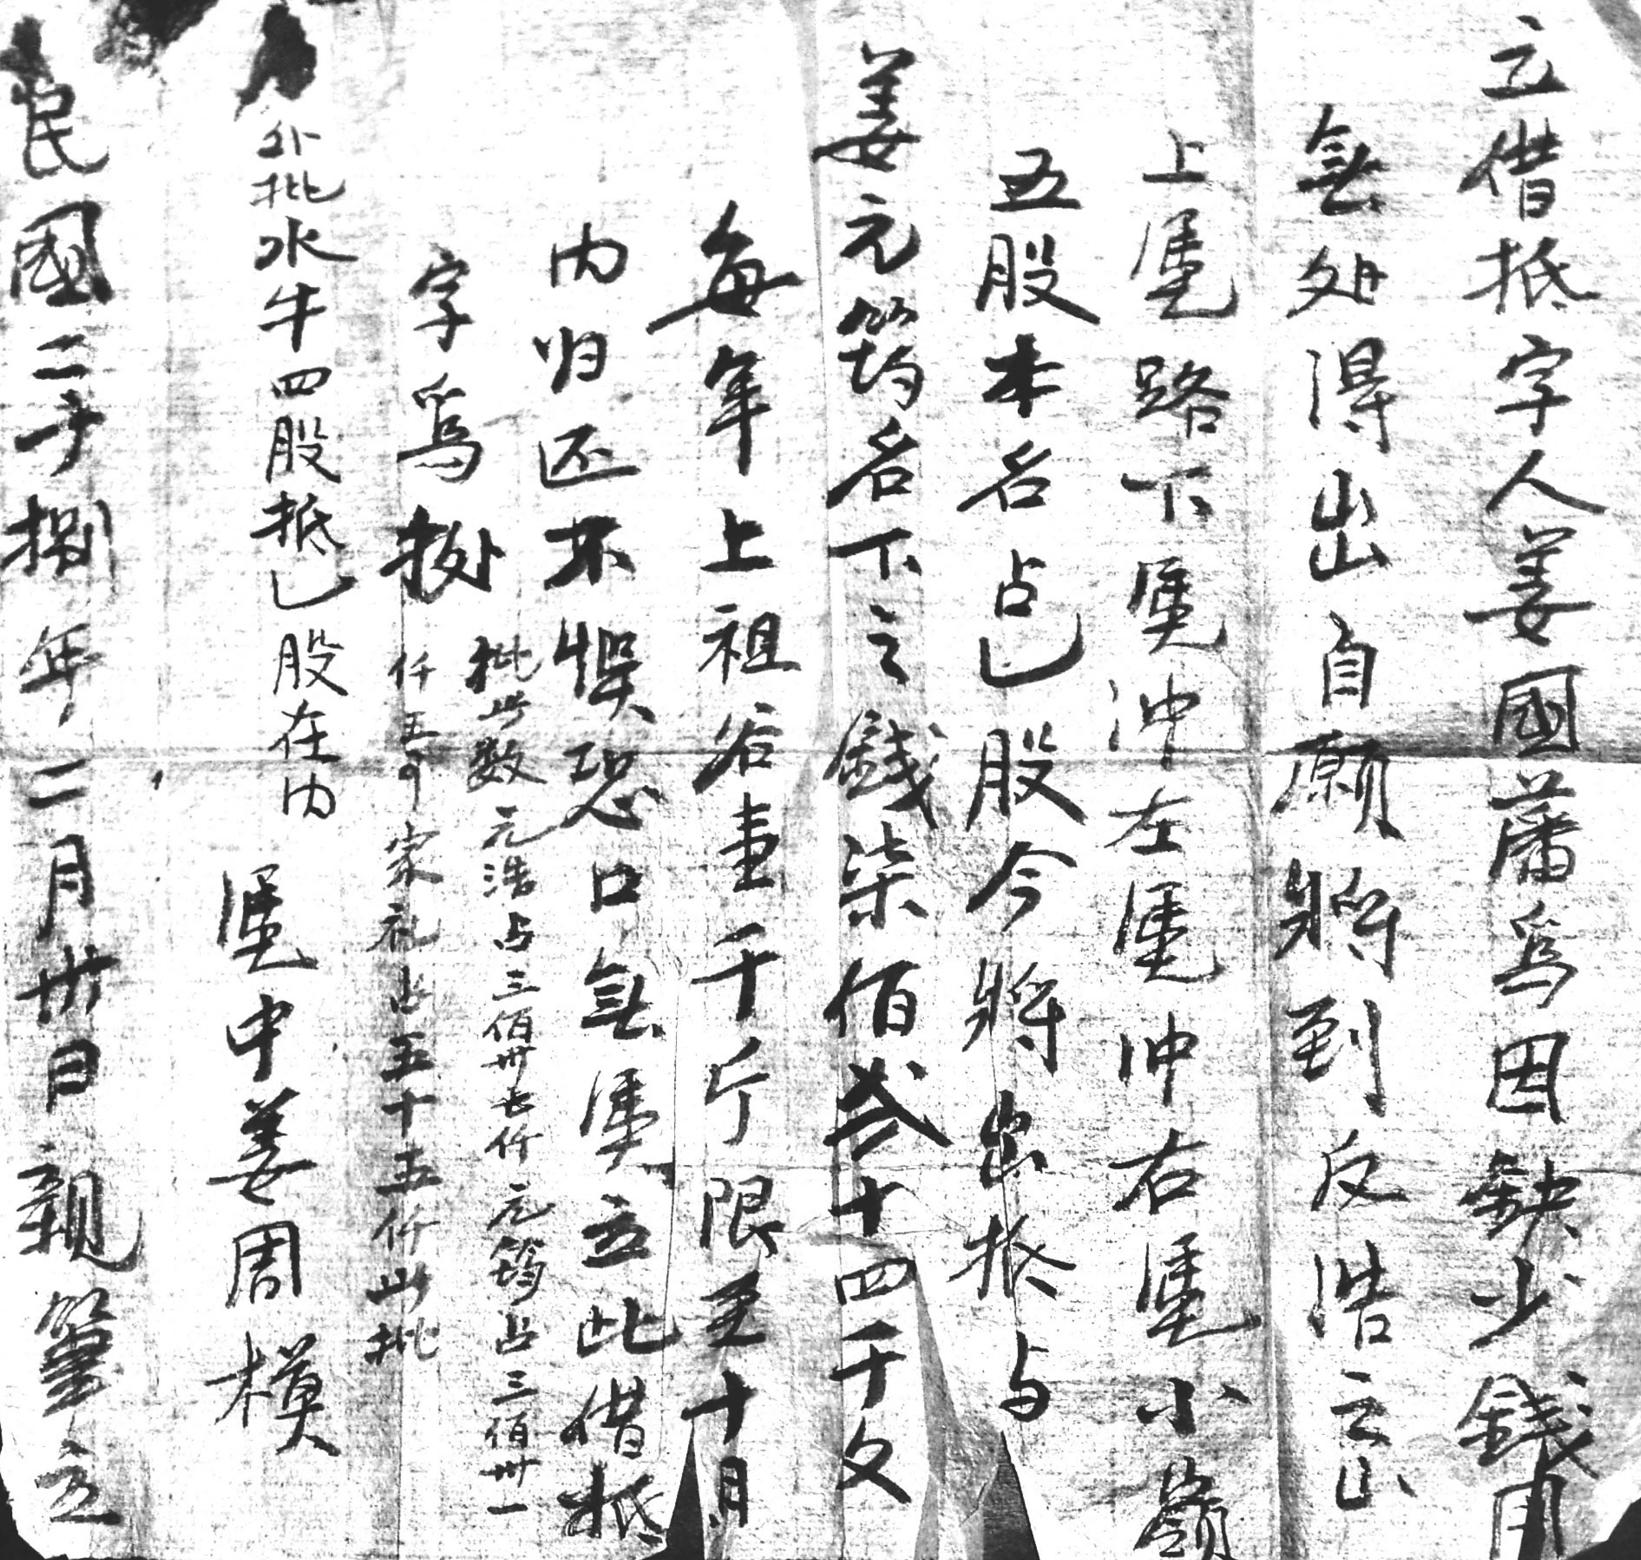 立借抵字人姜國藩爲因缺少錢用
無处得出自願將到反浩之山
上凴路下凴冲左凴冲右凴小嶺
五股本名占乙股今將出抵与
姜元筠名下之錢柒佰贰十四千文
每年上祖谷壹千斤限至十月
内归还不悮恐口無凴立此借抵
字爲据
批此数元浩占三佰卅七仟元筠占三佰卅一
仟五寸家礼占五十五仟此批
外批水牛四股抵乙股在内
凴中姜周模
民國二十捌年二月卅日親筆立